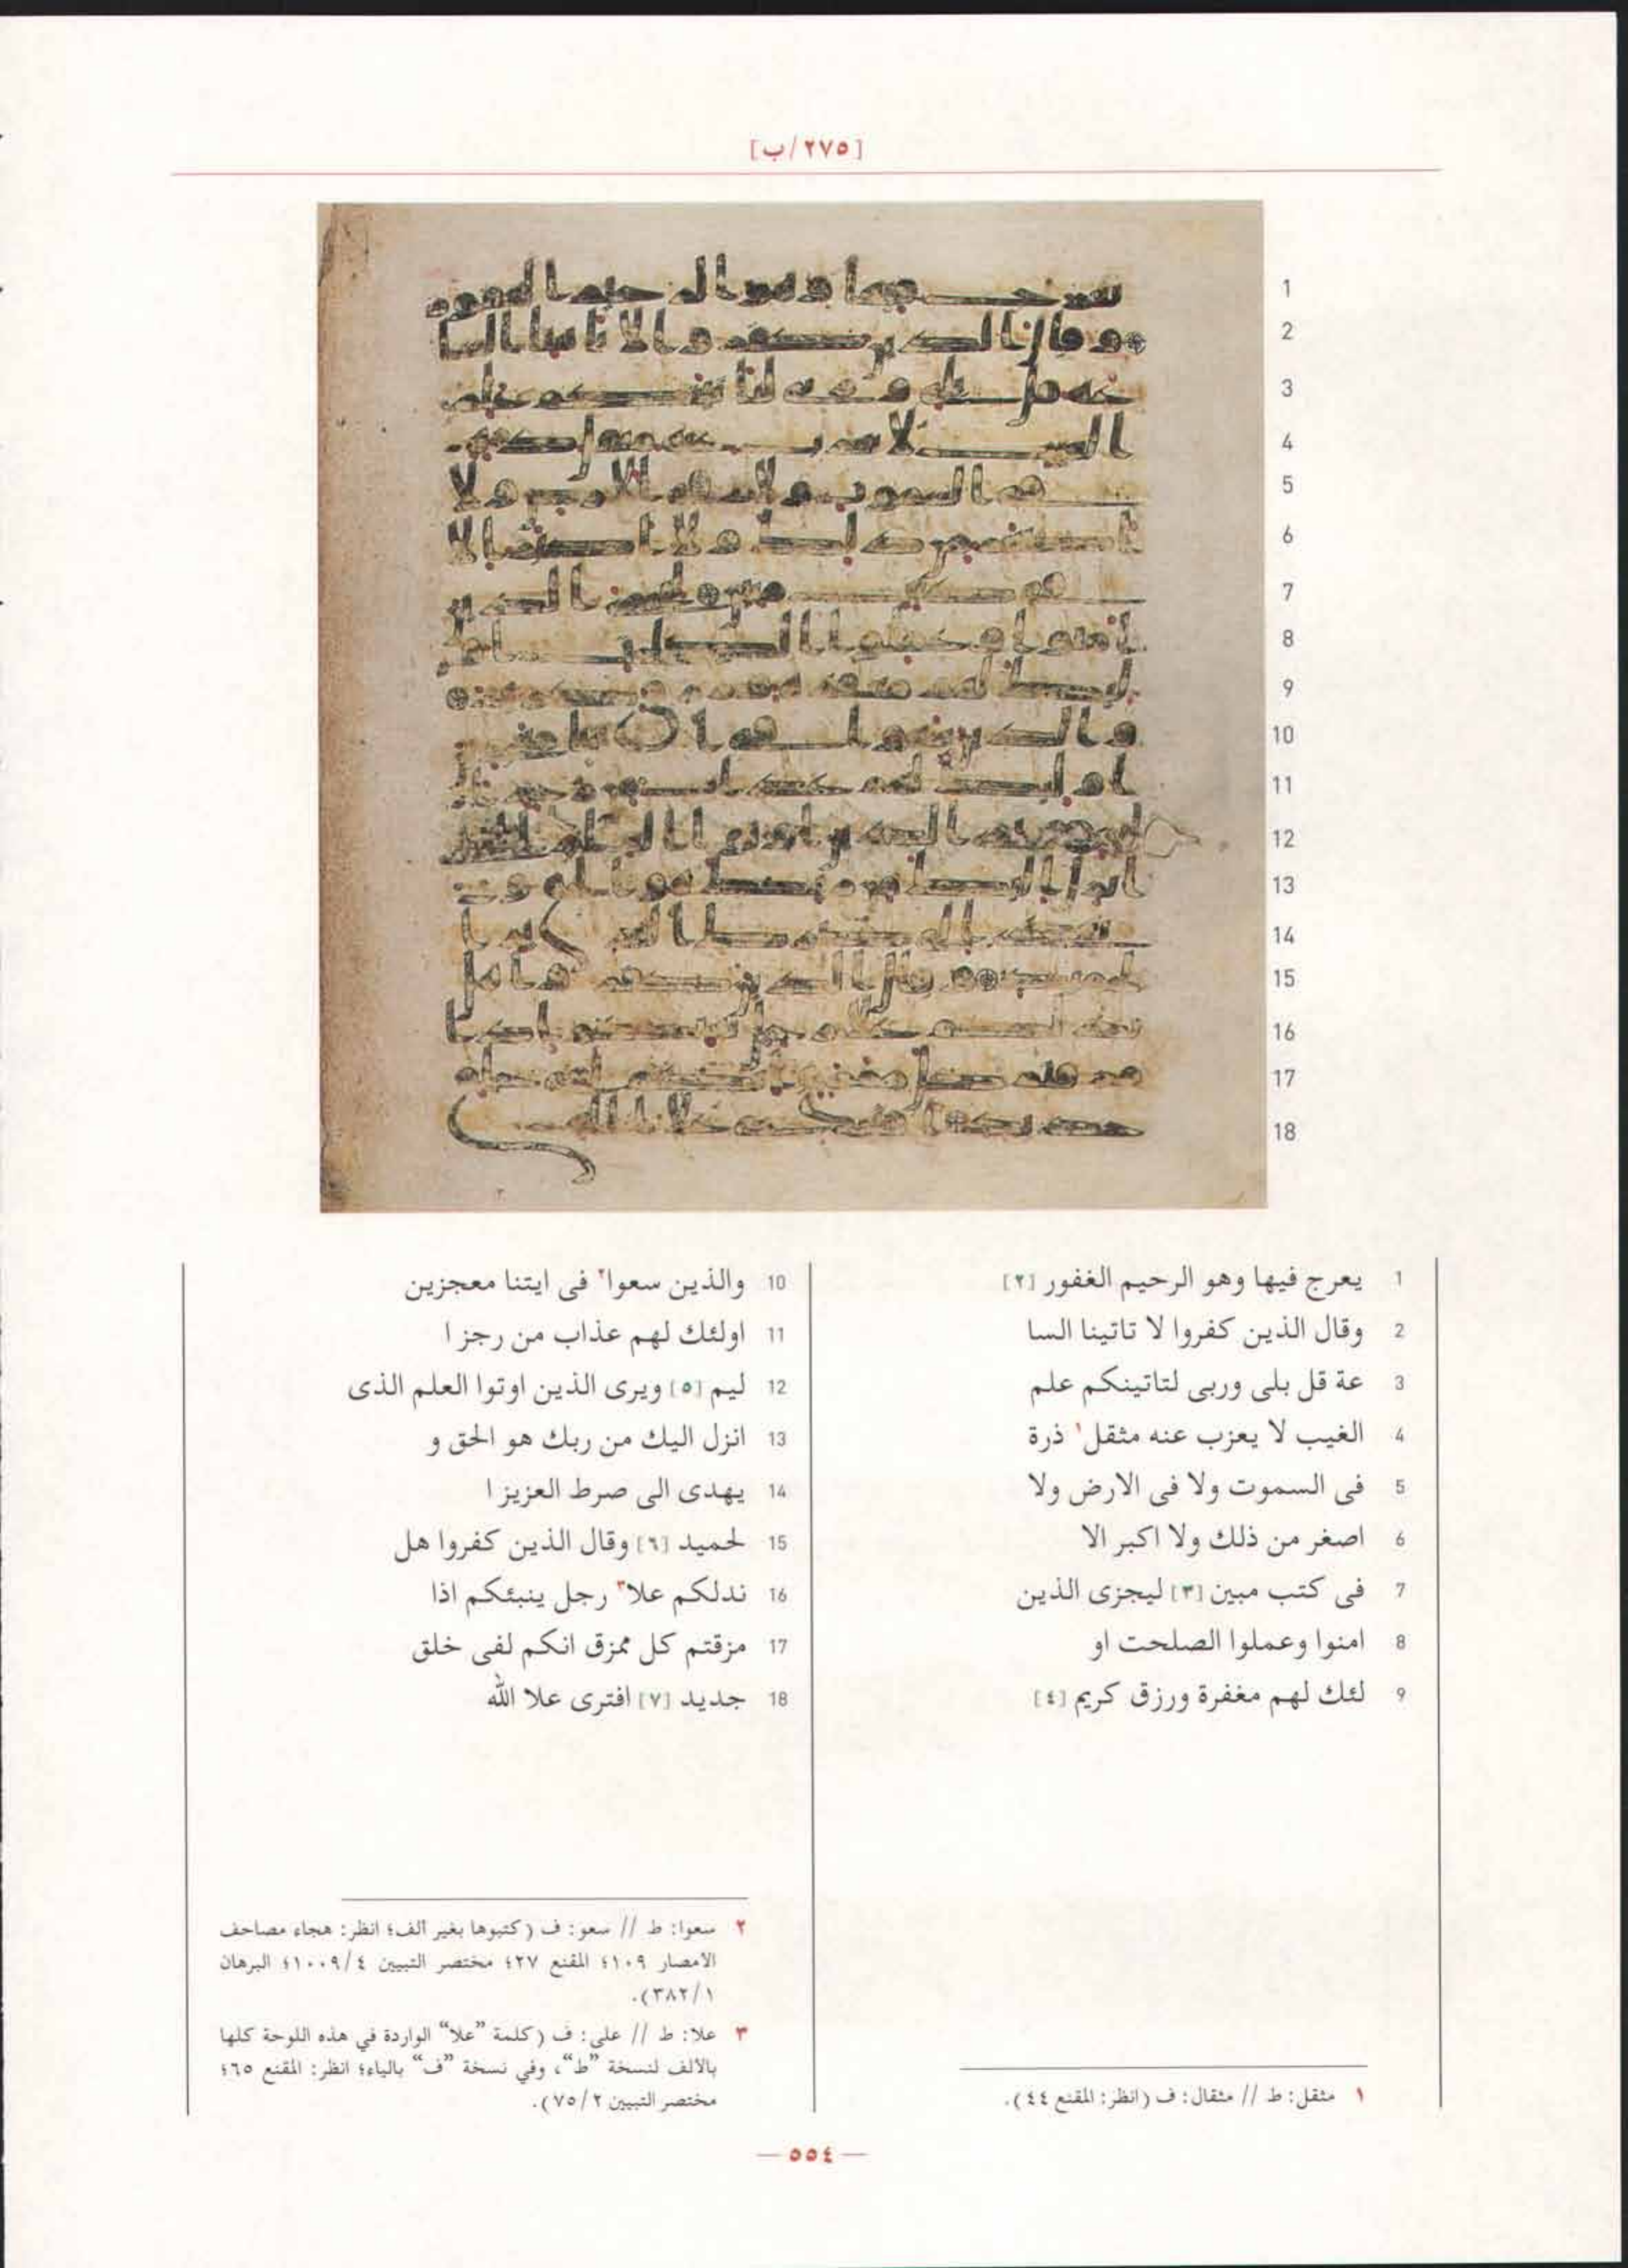 [٢٧٥/ب]
1 يعرج فيها وهو الرحيم الغفور [٢]
2 وقال الذين كفروا لا تاتينا السا
3 عة قل بلى وربى لتاتينكم علم
4 الغيب لا يعزب عنه مثقل١ ذرة
5 فى السموت ولا فى الارض ولا
6 اصغر من ذلك ولا اكبر الا
7 فى كتب مبين [٣] ليجزى الذين
8 امنوا وعملوا الصلحت او
9 لئك لهم مغفرة ورزق كريم [٤]
١ مثقل: ط // مثقال: ف (انظر: المقنع ٤٤).
10 والذين سعوا٢ فى ايتنا معجزين
11 اولئك لهم عذاب من رجز ا
12 ليم [٥] ويرى الذين اوتوا العلم الذى
13 انزل اليك من ربك هو الحق و
14 يهدى الى صرط العزيز ا
15 لحميد [٦] وقال الذين كفروا هل
16 ندلكم علا٣ رجل ينبئكم اذا
17 مزقتم كل ممزق انكم لفى خلق
18 جديد [٧] افترى علا الله
٢ سعوا: ط // سعو: ف (كتبوها بغير ألف؛ انظر: هجاء مصاحف
الامصار ١٠٩؛ المقنع ٢٧؛ مختصر التبيين ١٠٠٩/٤؛ البرهان
٣٨٢/١).
٣ علا: ط // على: ف (كلمة "علا" الواردة في هذه اللوحة كلها
بالألف لنسخة "ط"، وفي نسخة "ف" بالياء؛ انظر: المقنع ٦٥؛
مختصر التبيين ٧٥/٢).
— ٥٥٤ —